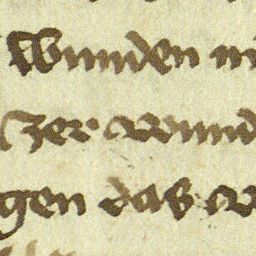 wunden
zer wund
gen das